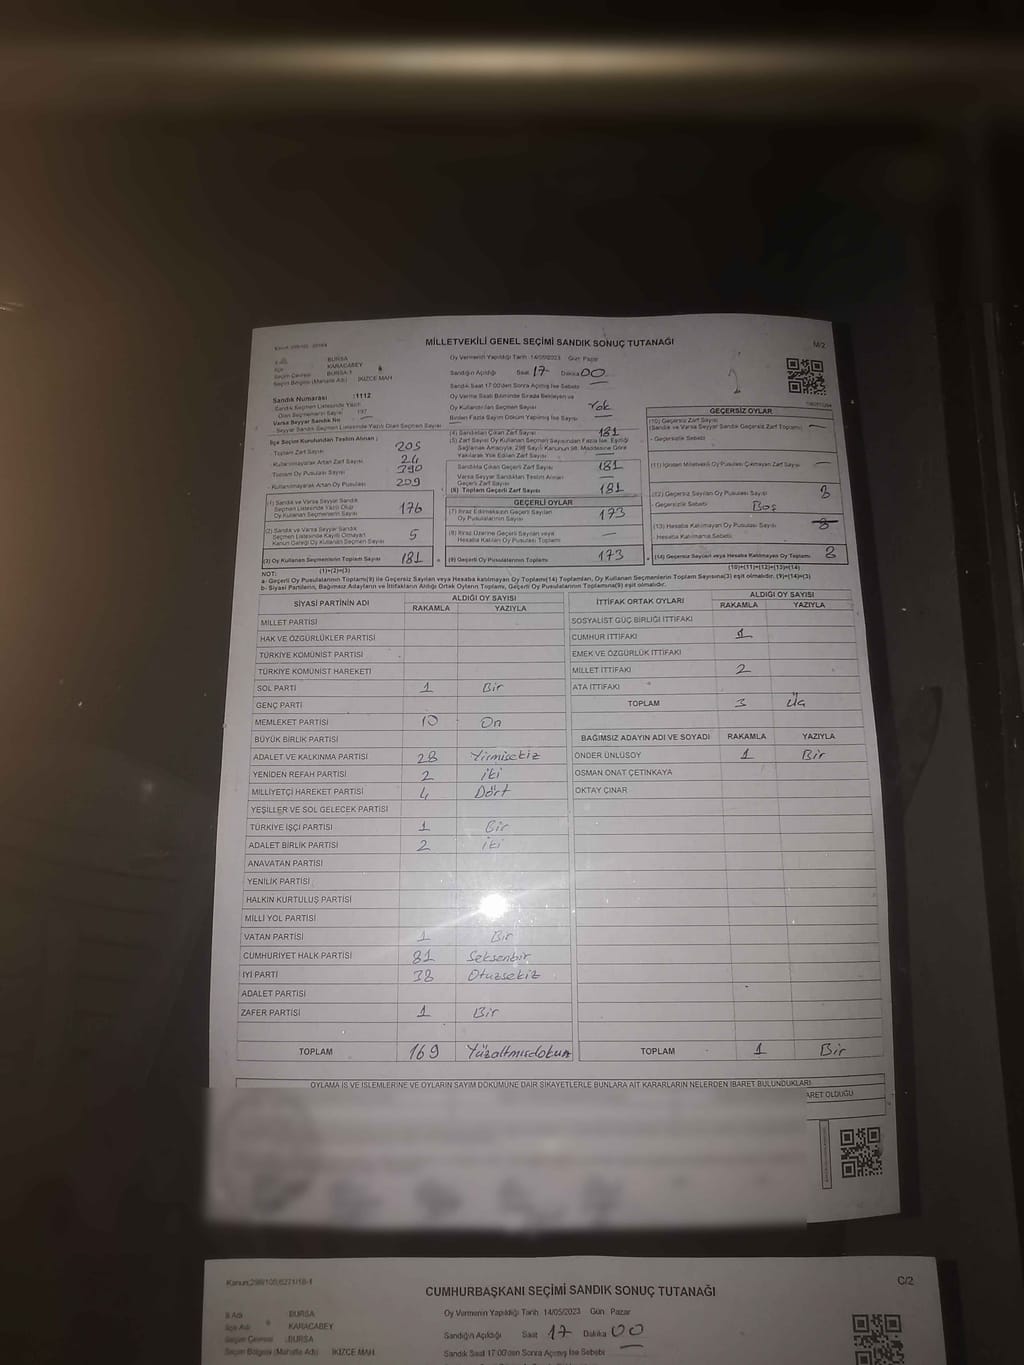 MİLLETVEKİLİ GENEL SEÇİMİ SANDIK SONUÇ TUTANAĞI
M/2
BURSA
KARACABEY
BURSA-1
Seçim Bölgesi (Mahalle Adı) İKİZCE MAH.
Oy Vermenin Yapıldığı Tarih :14/05/2023 Gün: Pazar
Sandığın Açıldığı Saat 17 Dakika 00
Sandık Saat 17:00'den Sonra Açılmış İse Sebebi
Oy Verme Saati Bitiminde Sırada Bekleyen ve
Oy Kullandırılan Seçmen Sayısı Yok
Birden Fazla Sayım Döküm Yapılmış İse Sayısı
Sandık Numarası :1112
Sandık Seçmen Listesinde Yazılı
Olan Seçmenlerin Sayısı 197
Varsa Seyyar Sandık No
Seyyar Sandık Seçmen Listesinde Yazılı Olan Seçmen Sayısı
İlçe Seçim Kurulundan Teslim Alınan ;
Toplam Zarf Sayısı 205
- Kullanılmayarak Artan Zarf Sayısı 24
Toplam Oy Pusulası Sayısı 390
- Kullanılmayarak Artan Oy Pusulası 209
(1) Sandık ve Varsa Seyyar Sandık
Seçmen Listesinde Yazılı Olup
Oy Kullanan Seçmenlerin Sayısı 176
(2) Sandık ve Varsa Seyyar Sandık
Seçmen Listesinde Kayıtlı Olmayan
Kanun Gereği Oy Kullanan Seçmen Sayısı 5
(3) Oy Kullanan Seçmenlerin Toplam Sayısı 181
(1)+(2)=(3)
(4) Sandıktan Çıkan Zarf Sayısı 181
(5) Zarf Sayısı Oy Kullanan Seçmen Sayısından Fazla İse, Eşitliği
Sağlamak Amacıyla, 298 Sayılı Kanunun 98. Maddesine Göre
Yakılarak Yok Edilen Zarf Sayısı
Sandıkta Çıkan Geçerli Zarf Sayısı 181
Varsa Seyyar Sandıktan Teslim Alınan
Geçerli Zarf Sayısı
(6) Toplam Geçerli Zarf Sayısı 181
GEÇERLİ OYLAR
(7) İtiraz Edilmeksizin Geçerli Sayılan
Oy Pusulalarının Sayısı 173
(8) İtiraz Üzerine Geçerli Sayılan veya
Hesaba Katılan Oy Pusulaları Toplamı
(9) Geçerli Oy Pusulalarının Toplamı 173
GEÇERSİZ OYLAR
(10) Geçersiz Zarf Sayısı
(Sandık ve Varsa Seyyar Sandık Geçersiz Zarf Toplamı)
- Geçersizlik Sebebi
(11) İçinden Milletvekili Oy Pusulası Çıkmayan Zarf Sayısı
(12) Geçersiz Sayılan Oy Pusulası Sayısı 8
- Geçersizlik Sebebi Boş
(13) Hesaba Katılmayan Oy Pusulası Sayısı
Hesaba Katılmama Sebebi
(14) Geçersiz Sayılan veya Hesaba Katılmayan Oy Toplamı 8
(10)+(11)+(12)+(13)=(14)
NOT:
a- Geçerli Oy Pusulalarının Toplamı(9) ile Geçersiz Sayılan veya Hesaba katılmayan Oy Toplamı(14) Toplamları, Oy Kullanan Seçmenlerin Toplam Sayısına(3) eşit olmalıdır. (9)+(14)=(3)
b- Siyasi Partilerin, Bağımsız Adayların ve İttifakların Aldığı Ortak Oyların Toplamı, Geçerli Oy Pusulalarının Toplamına(9) eşit olmalıdır.
SİYASİ PARTİNİN ADI ALDIĞI OY SAYISI
RAKAMLA YAZIYLA
MİLLET PARTİSİ
HAK VE ÖZGÜRLÜKLER PARTİSİ
TÜRKİYE KOMÜNİST PARTİSİ
TÜRKİYE KOMÜNİST HAREKETİ
SOL PARTİ 1 Bir
GENÇ PARTİ
MEMLEKET PARTİSİ 10 On
BÜYÜK BİRLİK PARTİSİ
ADALET VE KALKINMA PARTİSİ 28 Yirmisekiz
YENİDEN REFAH PARTİSİ 2 iki
MİLLİYETÇİ HAREKET PARTİSİ 4 Dört
YEŞİLLER VE SOL GELECEK PARTİSİ
TÜRKİYE İŞÇİ PARTİSİ 1 Bir
ADALET BİRLİK PARTİSİ 2 iki
ANAVATAN PARTİSİ
YENİLİK PARTİSİ
HALKIN KURTULUŞ PARTİSİ
MİLLİ YOL PARTİSİ
VATAN PARTİSİ 1 Bir
CUMHURİYET HALK PARTİSİ 81 Seksenbir
İYİ PARTİ 38 Otuzsekiz
ADALET PARTİSİ
ZAFER PARTİSİ 1 Bir
TOPLAM 169 Yüzaltmışdokuz
İTTİFAK ORTAK OYLARI ALDIĞI OY SAYISI
RAKAMLA YAZIYLA
SOSYALİST GÜÇ BİRLİĞİ İTTİFAKI
CUMHUR İTTİFAKI 1
EMEK VE ÖZGÜRLÜK İTTİFAKI
MİLLET İTTİFAKI 2
ATA İTTİFAKI
TOPLAM 3 Üç
BAĞIMSIZ ADAYIN ADI VE SOYADI RAKAMLA YAZIYLA
ÖNDER ÜNLÜSOY 1 Bir
OSMAN ONAT ÇETİNKAYA
OKTAY ÇINAR
TOPLAM 1 Bir
OYLAMA İŞ VE İŞLEMLERİNE VE OYLARIN SAYIM DÖKÜMÜNE DAİR ŞİKAYETLERLE BUNLARA AİT KARARLARIN NELERDEN İBARET BULUNDUKLARI
ARET OLDUĞU
Kanun;298/105;6271/18-1
CUMHURBAŞKANI SEÇİMİ SANDIK SONUÇ TUTANAĞI
C/2
İl Adı BURSA
İlçe Adı KARACABEY
Seçim Çevresi :BURSA
Seçim Bölgesi (Mahalle Adı) İKİZCE MAH.
Oy Vermenin Yapıldığı Tarih 14/05/2023 Gün Pazar
Sandığın Açıldığı Saat 17 Dakika 00
Sandık Saat 17:00'den Sonra Açılmış İse Sebebi